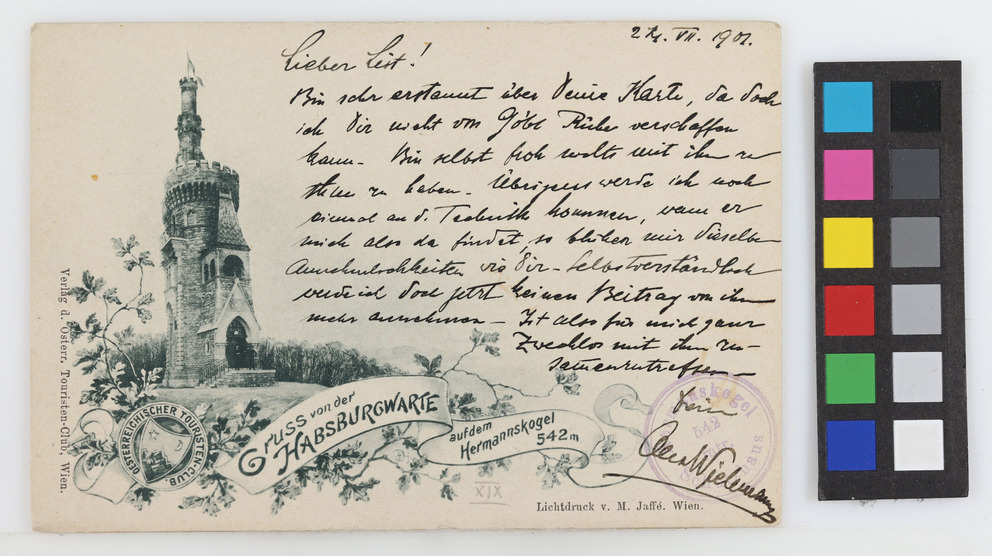 24. VII. 1901.
Lieber List!
Bin sehr erstaunt über Deine Karte, da doch
ich Dir nicht von Göbl Ruhe verschaffen
kann. Bin selbst froh nichts mit ihm zu
thun zu haben. Übrigens werde ich noch
einmal an d. Technik kommen, wenn er
mich also da findet, so blühen mir dieselben
Annehmlichkeiten wie Dir. Selbstverständlich
werde ich doch jetzt keinen Beitrag von ihm
mehr annehmen. Ist also für mich ganz
Zwecklos mit ihm zu-
sammenzutreffen.
Dein
Wielemans
Gruss von der
HABSBURGWARTE
auf dem
Hermannskogel
542 m
ÖSTERREICHISCHER TOURISTEN-CLUB.
Verlag d. Österr. Touristen-Club, Wien.
542
XIX
Lichtdruck v. M. Jaffé. Wien.